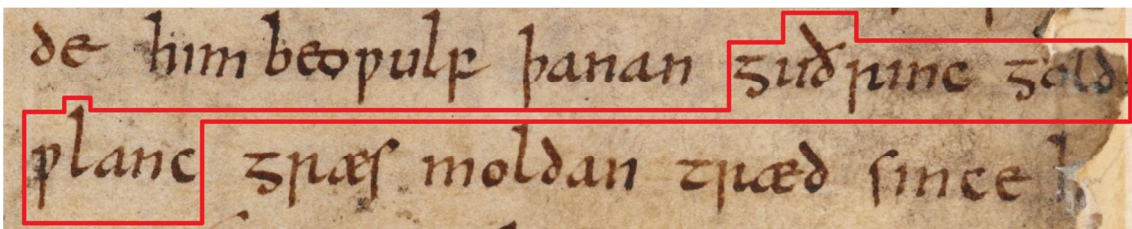 de him beoƿulf þanan guðrinc gold
ƿlanc græs moldan træd since h